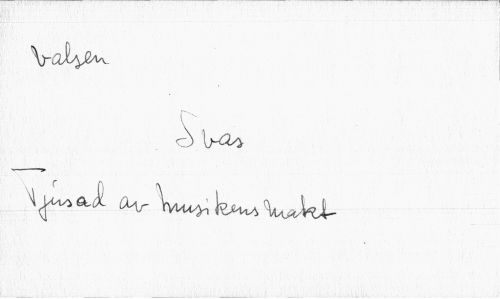 valsen
Svas
Tjusad av musikens makt